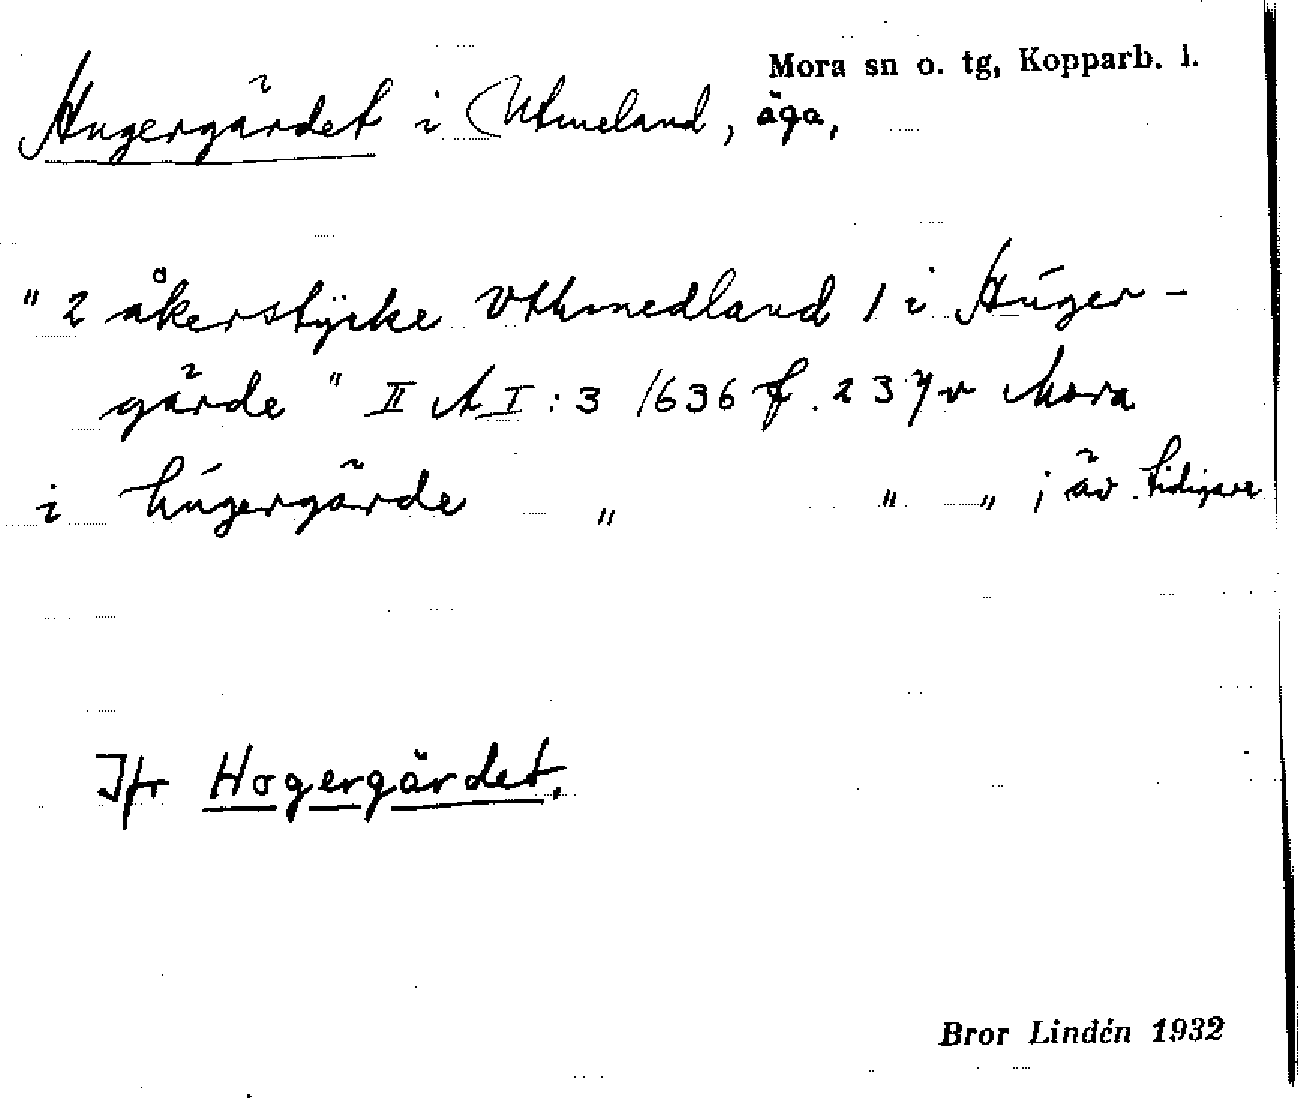 Mora sn o. tg, Kopparb. l.
Hugergärdet i Utmeland, äga,
" 2 åkerstÿcke Vthmedland / i Húger-
gärde " II A I : 3 1636 f. 237v Mora
i húgergärde " " " ; äv. tidigare
Jfr Hogergärdet.
Bror Lindén 1932